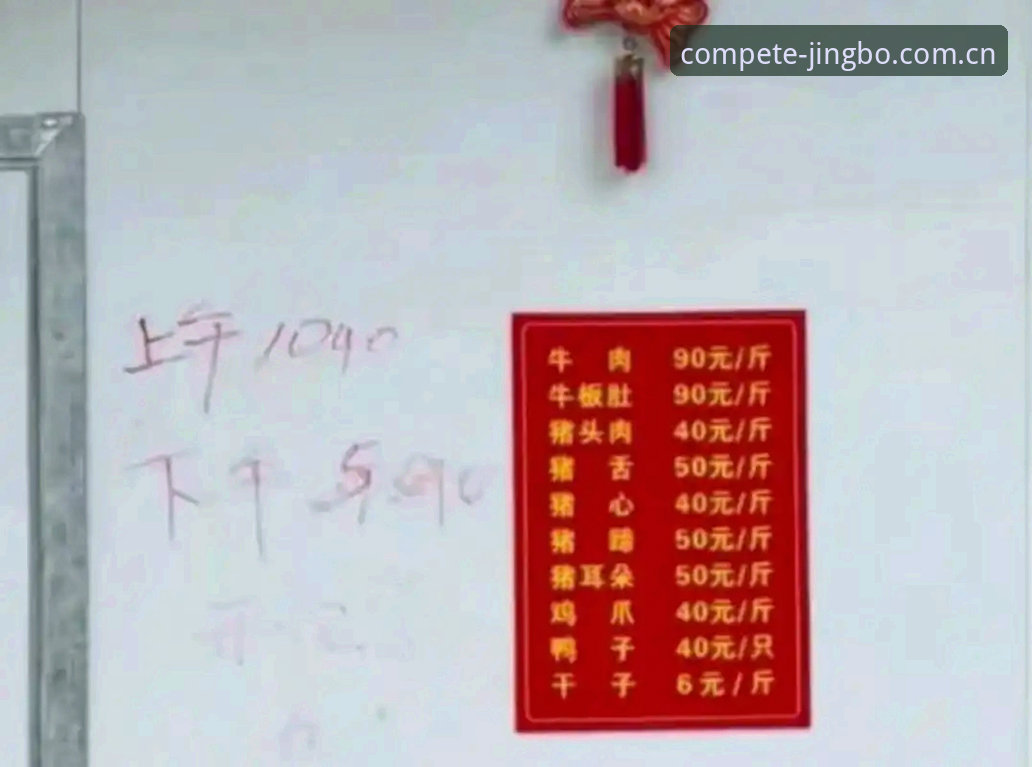 compete-jingbo.com.cn
上午 1040
下午
牛肉 90元/斤
牛板肚 90元/斤
猪头肉 40元/斤
猪舌 50元/斤
猪心 40元/斤
猪蹄 50元/斤
猪耳朵 50元/斤
鸡爪 40元/斤
鸭子 40元/只
干子 6元/斤